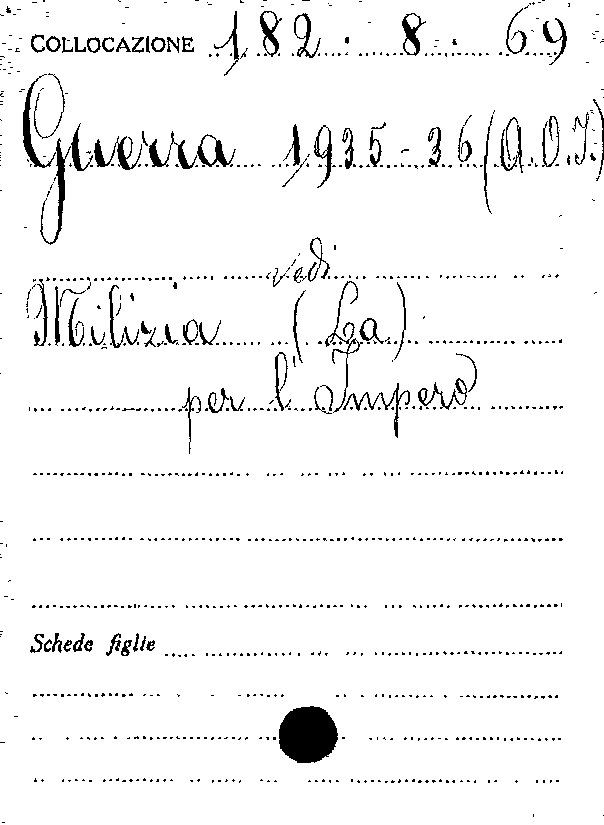 COLLOCAZIONE 182. 8. 69
Guerra 1935-36 (A.O.I.)
vedi
Milizia (La)
per l'Impero
Schede figlie